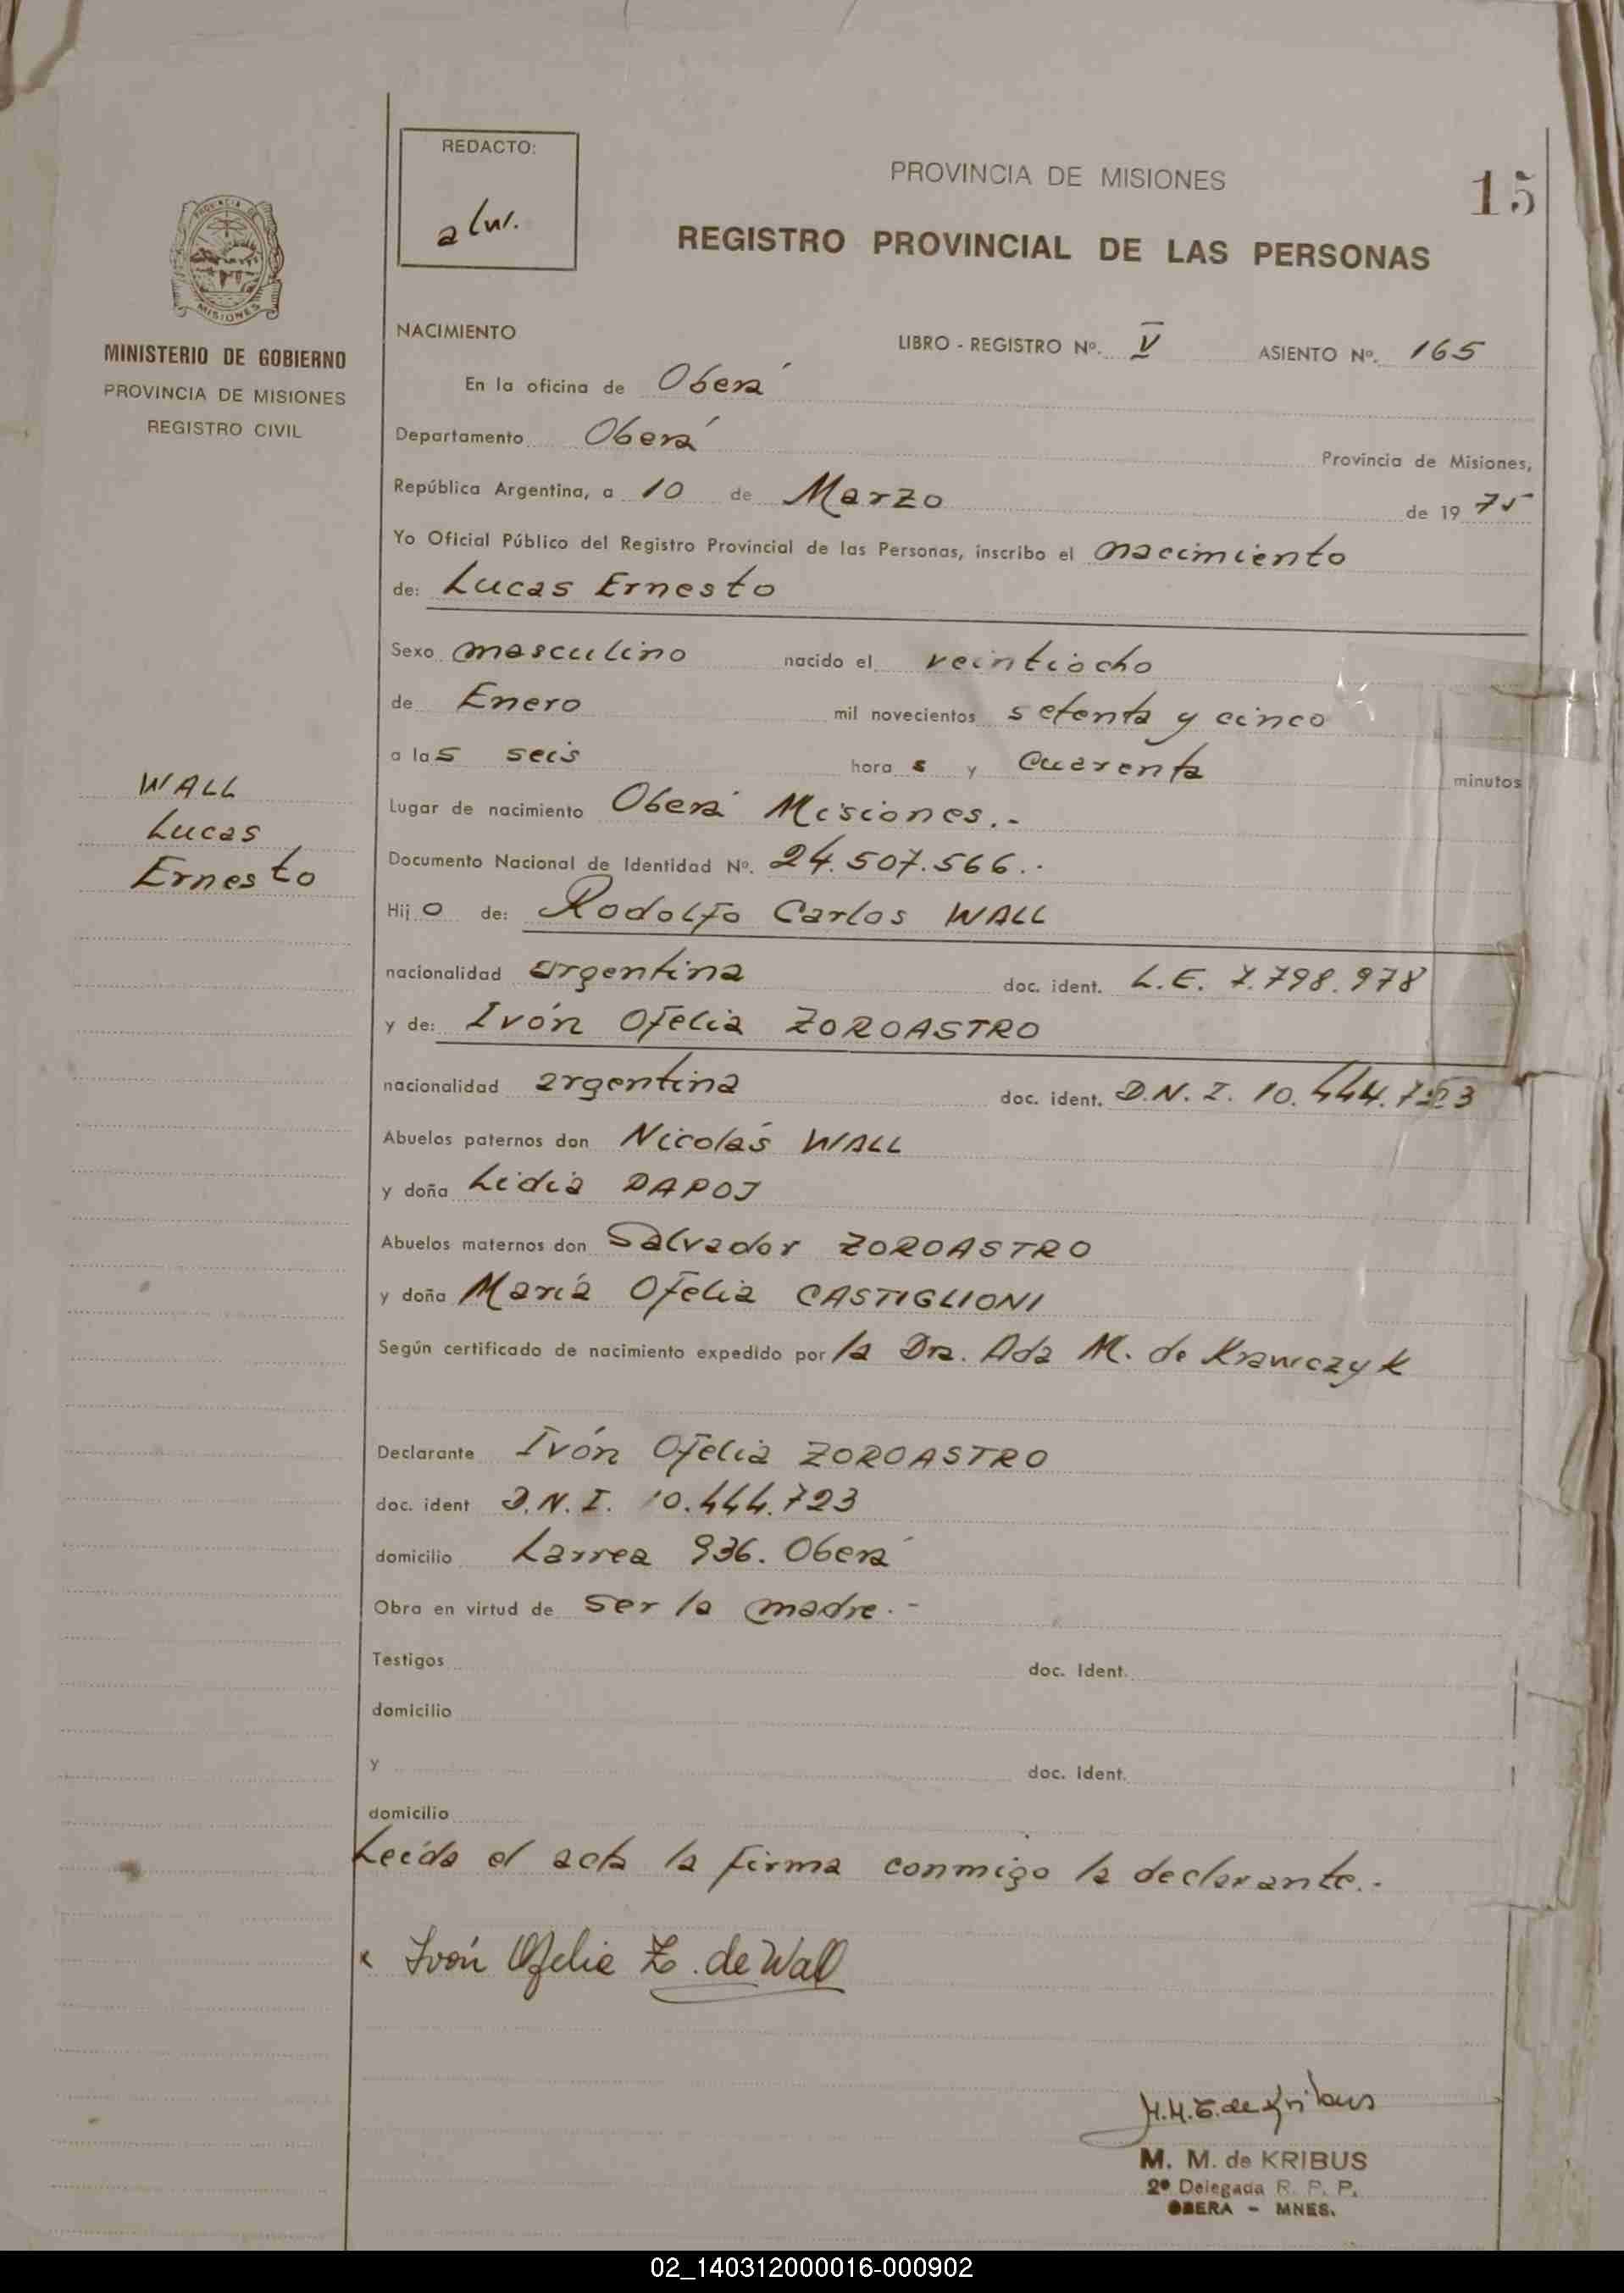 REDACTO:
PROVINCIA DE MISIONES
15
REGISTRO PROVINCIAL DE LAS PERSONAS
PROVINCIA DE
MISIONES
MINISTERIO DE GOBIERNO
PROVINCIA DE MISIONES
REGISTRO CIVIL
NACIMIENTO LIBRO - REGISTRO Nº. V ASIENTO Nº. 165
En la oficina de Oberá
Departamento Oberá Provincia de Misiones,
República Argentina, a 10 de Marzo de 19 75
Yo Oficial Público del Registro Provincial de las Personas, inscribo el nacimiento
de: Lucas Ernesto
Sexo masculino nacido el veintiocho
de Enero mil novecientos setenta y cinco
a las seis horas y cuarenta minutos
WALL
Lucas
Ernesto
Lugar de nacimiento Oberá Misiones.-
Documento Nacional de Identidad Nº. 24.507.566.-
Hijo de: Rodolfo Carlos WALL
nacionalidad argentina doc. ident. L.E. 7.798.978
y de: Ivón Ofelia ZOROASTRO
nacionalidad argentina doc. ident. D.N.I. 10.444.723
Abuelos paternos don Nicolás WALL
y doña Lidia DAPOJ
Abuelos maternos don Salvador ZOROASTRO
y doña María Ofelia CASTIGLIONI
Según certificado de nacimiento expedido por la Dra. Ada M. de Krawczyk
Declarante Ivón Ofelia ZOROASTRO
doc. ident D.N.I. 10.444.723
domicilio Larrea 936. Oberá
Obra en virtud de ser la madre.-
Testigos doc. Ident.
domicilio
y doc. Ident.
domicilio
Leída el acta la firma conmigo la declarante.-
Ivón Ofelia Z. de Wall
de Kribus
M. M. de KRIBUS
2º Delegada R. P. P.
OBERA - MNES.
02_140312000016-000902